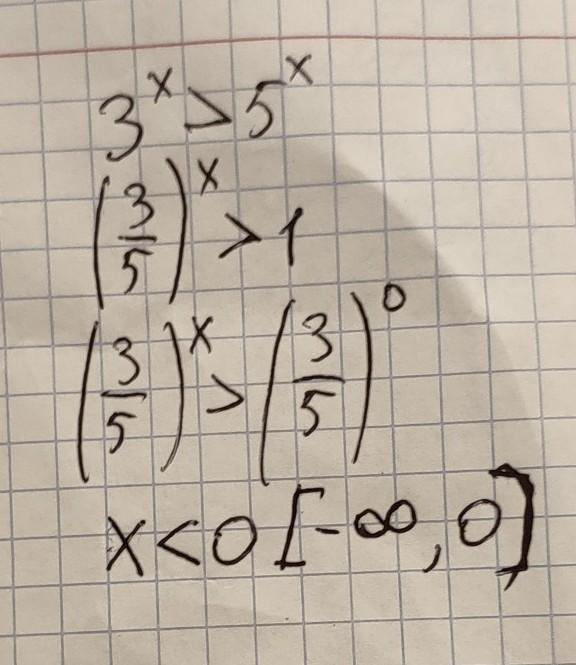 3^x > 5^x
(3/5)^x > 1
(3/5)^x > (3/5)^0
x < 0 [-∞, 0]